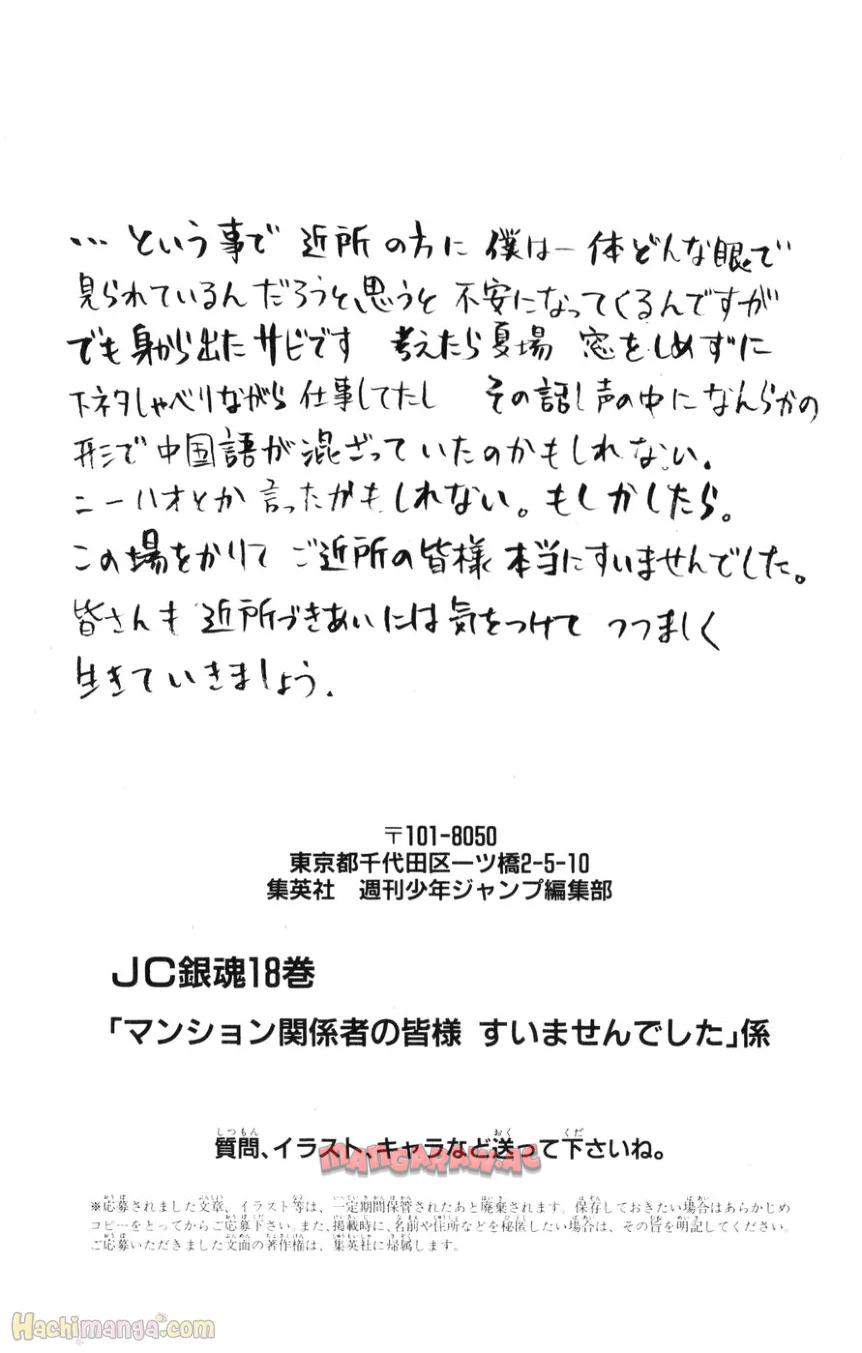 …という事で 近所の方に 僕は一体どんな眼で
見られているんだろうと、思うと 不安になってくるんですが
でも身から出たサビです 考えたら夏場 窓をしめずに
下ネタしゃべりながら 仕事してたし その話し声の中になんらかの
形で中国語が混ざっていたのかもしれない.
ニーハオとか言ったかもしれない。もしかしたら。
この場をかりて ご近所の皆様 本当にすいませんでした。
皆さんも 近所づきあいには気をつけて つつましく
生きていきましょう.
〒101-8050
東京都千代田区一ツ橋2-5-10
集英社 週刊少年ジャンプ編集部
JC銀魂18巻
「マンション関係者の皆様 すいませんでした」係
質問、イラスト、キャラなど送って下さいね。
MANGARAW.AC
※応募されました文章、イラスト等は、一定期間保管されたあと廃棄されます。保存しておきたい場合はあらかじめ
コピーをとってからご応募下さい。また、掲載時に、名前や住所などを秘匿したい場合は、その旨を明記してください。
ご応募いただきました文面の著作権は、集英社に帰属します。
Hachimanga.com